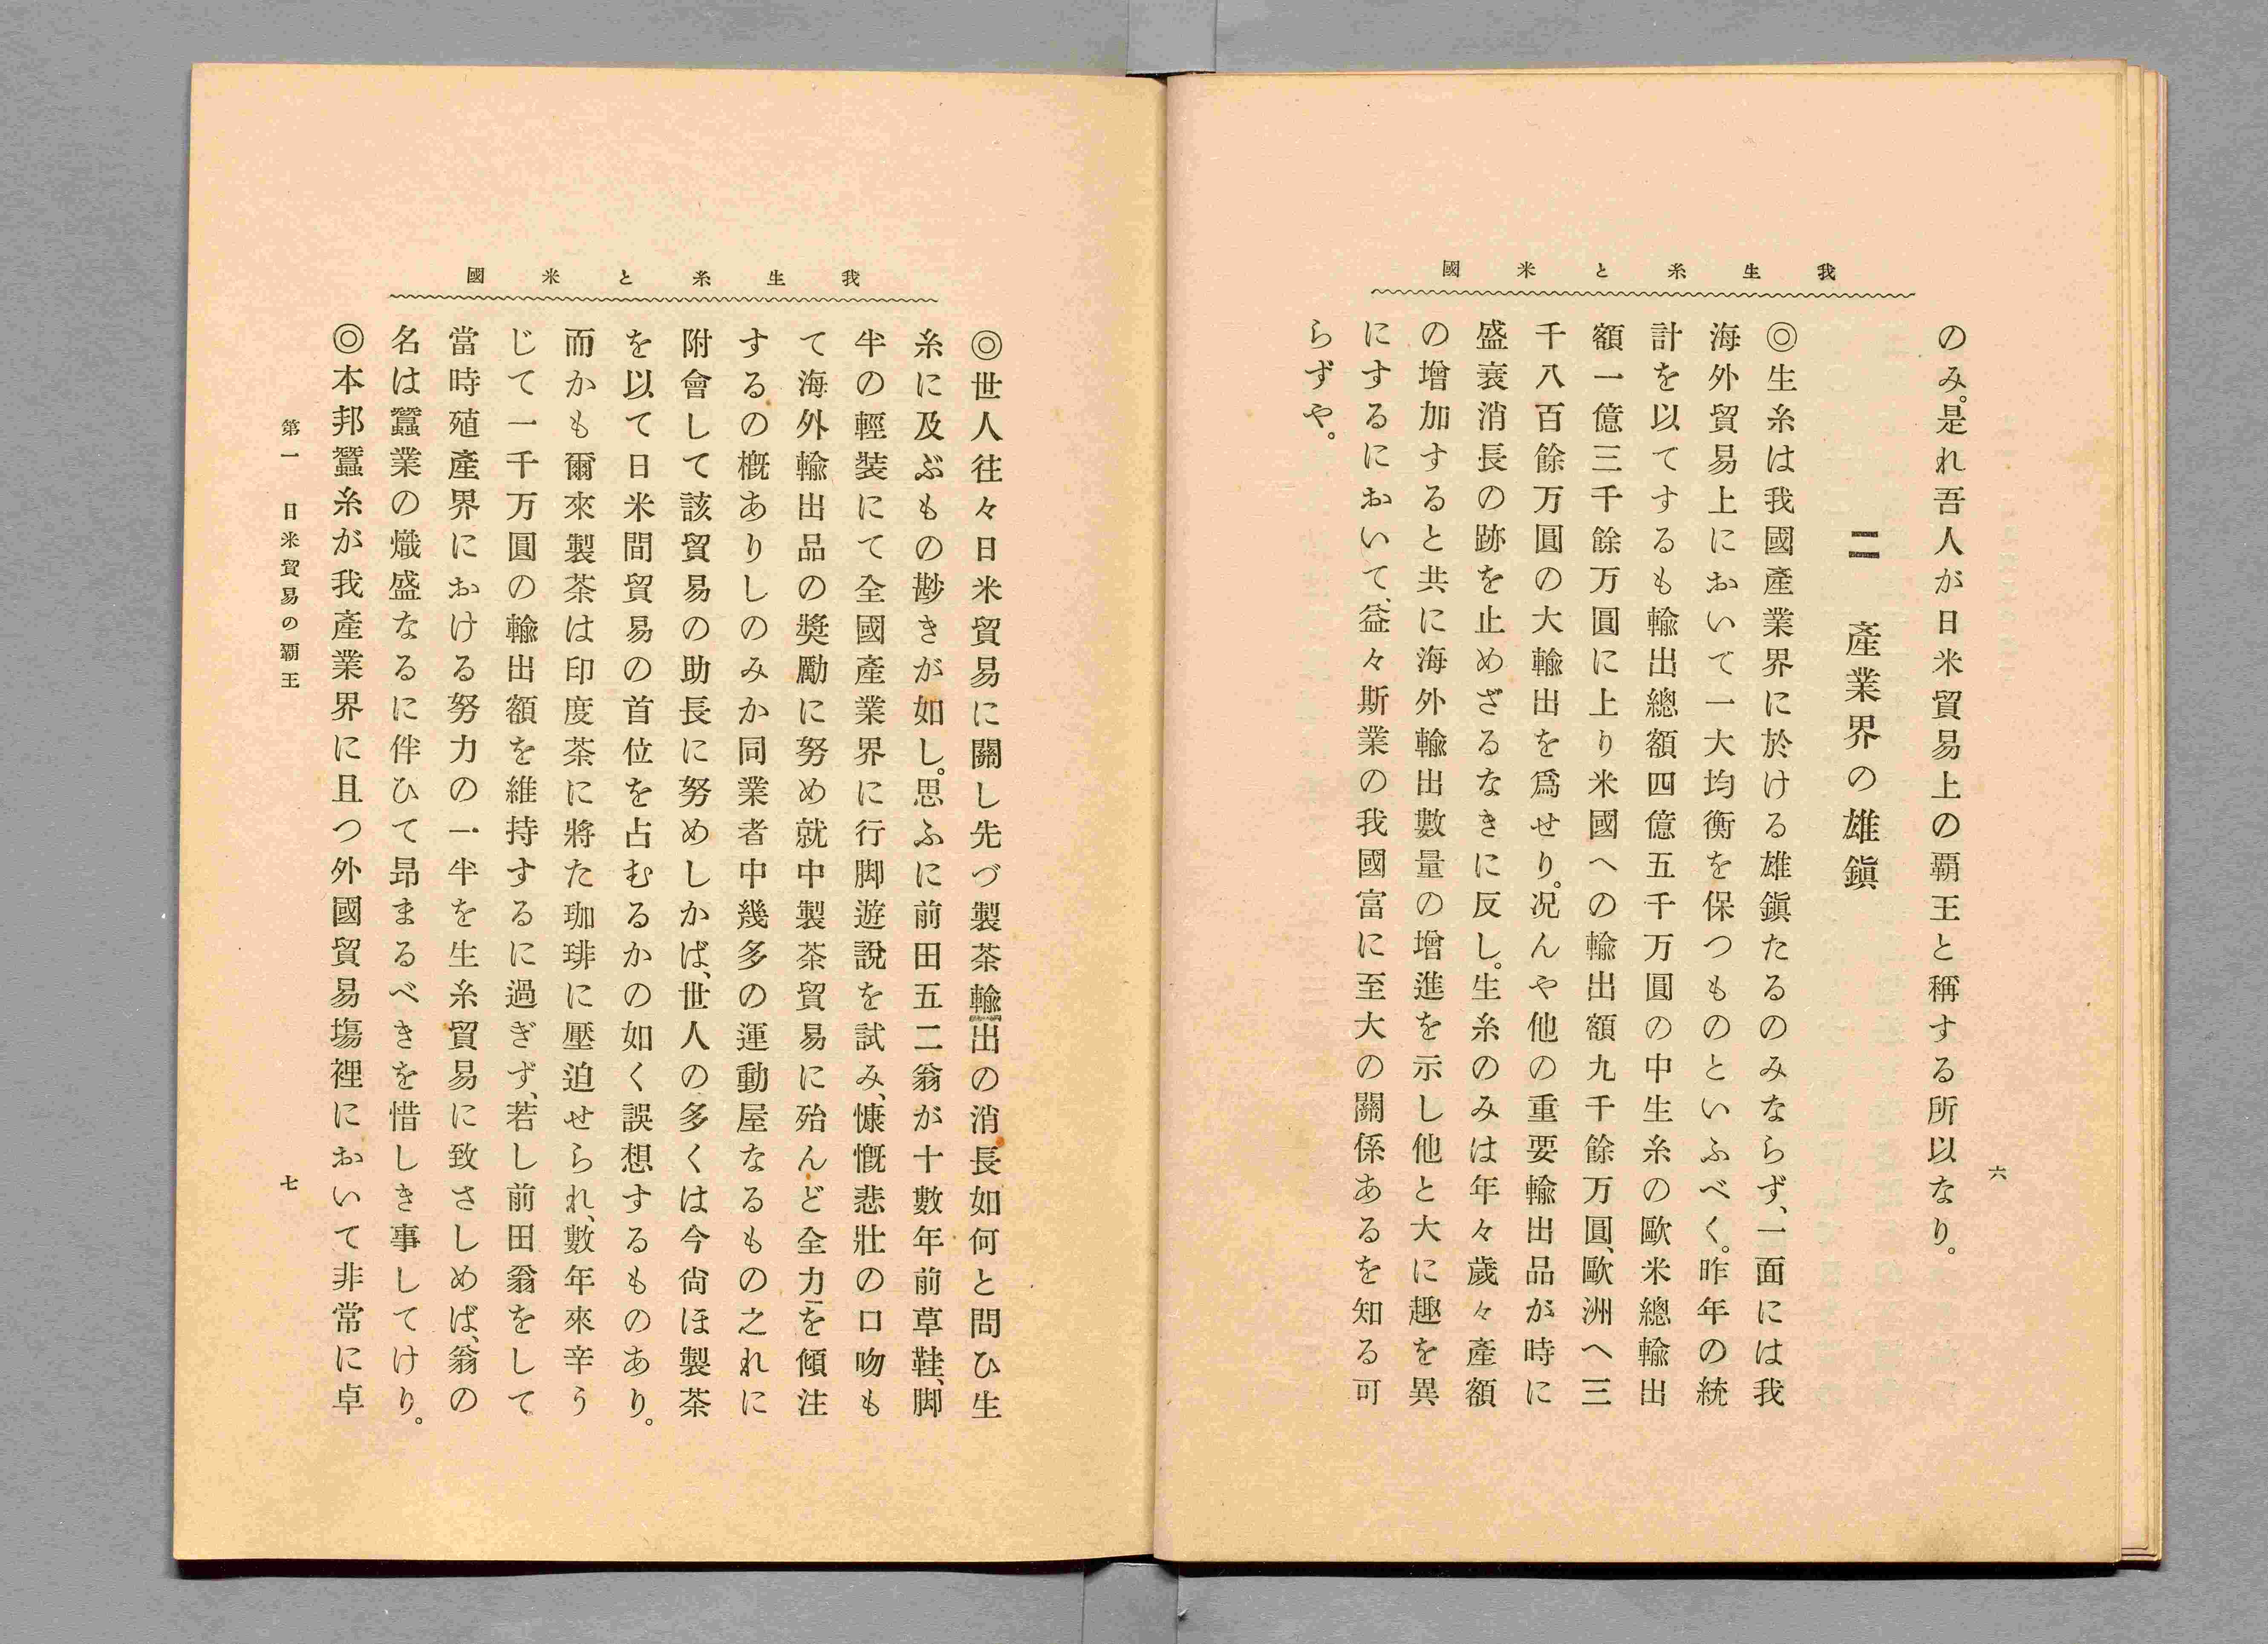 我生糸と米國
のみ。是れ吾人が日米貿易上の覇王と稱する所以なり。
二　產業界の雄鎭
◎生糸は我國產業界に於ける雄鎭たるのみならず、一面には我
海外貿易上において一大均衡を保つものといふべく。昨年の統
計を以てするも輸出總額四億五千万圓の中生糸の歐米總輸出
額一億三千餘万圓に上り米國への輸出額九千餘万圓、歐洲へ三
千八百餘万圓の大輸出を爲せり。况んや他の重要輸出品が時に
盛衰消長の跡を止めざるなきに反し。生糸のみは年々歲々產額
の增加すると共に海外輸出數量の增進を示し他と大に趣を異
にするにおいて、益々斯業の我國富に至大の關係あるを知る可
らずや。
六
我生糸と米國
◎世人往々日米貿易に關し先づ製茶輸出の消長如何と問ひ生
糸に及ぶもの尠きが如し。思ふに前田五二翁が十數年前草鞋、脚
半の輕裝にて全國產業界に行脚遊說を試み、慷慨悲壯の口吻も
て海外輸出品の奬勵に努め就中製茶貿易に殆んど全力を傾注
するの槪ありしのみか同業者中幾多の運動屋なるもの之れに
附會して該貿易の助長に努めしかば、世人の多くは今尙ほ製茶
を以て日米間貿易の首位を占むるかの如く誤想するものあり。
而かも爾來製茶は印度茶に將た珈琲に壓迫せられ、數年來辛う
じて一千万圓の輸出額を維持するに過ぎず、若し前田翁をして
當時殖產界における努力の一半を生糸貿易に致さしめば、翁の
名は蠶業の熾盛なるに伴ひて昻まるべきを惜しき事してけり。
◎本邦蠶糸が我產業界に且つ外國貿易塲裡において非常に卓
第一　日米貿易の覇王
七